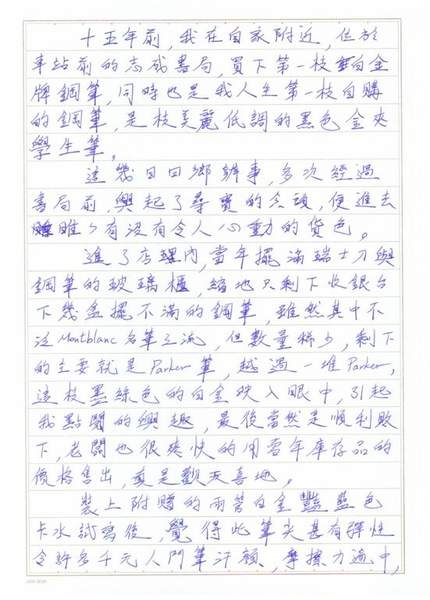 十五年前,我在自家附近,位於
車站前的志成書局,買下第一枝白金
牌鋼筆,同時也是我人生第一枝自購
的鋼筆,是枝美麗低調的黑色金夾
學生筆。
這幾日回鄉辦事,多次經過
書局前,興起了尋寶的念頭,便進去
瞧瞧有沒有令人心動的貨色。
進了店裡內,當年擺滿瑞士刀與
鋼筆的玻璃櫃,縮地只剩下收銀台
下幾盒擺不滿的鋼筆,雖然其中不
泛Montblanc名筆之流,但數量稀少,剩下
的主要就是Parker筆,越過一堆Parker,
這枝墨綠色的白金映入眼中,引起
我點閱的興趣,最後當然是順利敗
下,老闆也很爽快的用當年庫存品的
價格售出,真是歡天喜地。
裝上附贈的兩管白金豔藍色
卡水試寫後,覺得此筆尖甚有彈性
令許多千元入門筆汗顏,摩擦力適中,